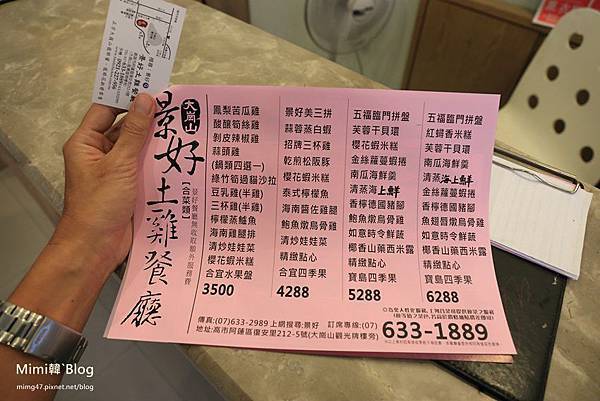 大崗山
景好土雞餐廳
【合菜類】
景好餐廳無收取額外服務費
鳳梨苦瓜雞
酸釀筍絲雞
剝皮辣椒雞
蒜頭雞
(鍋類四選一)
綠竹筍過貓沙拉
豆乳雞(半雞)
三杯雞(半雞)
檸檬蒸鱸魚
海南雞腿排
清炒娃娃菜
櫻花蝦米糕
合宜水果盤
3500
景好美三拼
蒜蓉蒸白蝦
招牌三杯雞
乾煎松阪豚
櫻花蝦米糕
泰式檸檬魚
海南醬佐雞腿
鮑魚燉烏骨雞
清炒娃娃菜
精緻點心
合宜四季果
4288
五福臨門拼盤
芙蓉干貝環
櫻花蝦米糕
金絲蘿蔓蝦捲
南瓜海鮮羹
清蒸海上鮮
香檸德國豬腳
鮑魚燉烏骨雞
如意時令鮮蔬
椰香山藥西米露
精緻點心
寶島四季果
5288
五福臨門拼盤
紅蟳香米糕
芙蓉干貝環
南瓜海鮮羹
清蒸海上鮮
金絲蘿蔓蝦捲
香檸德國豬腳
魚翅唇燉烏骨雞
如意時令鮮蔬
椰香山藥西米露
精緻點心
寶島四季果
6288
傳真:(07)633-2989 上網搜尋:景好 訂席專線:(07)
633-1889
地址:高市阿蓮區復安里212-5號(大崗山觀光牌樓旁)
Mimi韓ˋBlog
mimg47.pixnet.net/blog